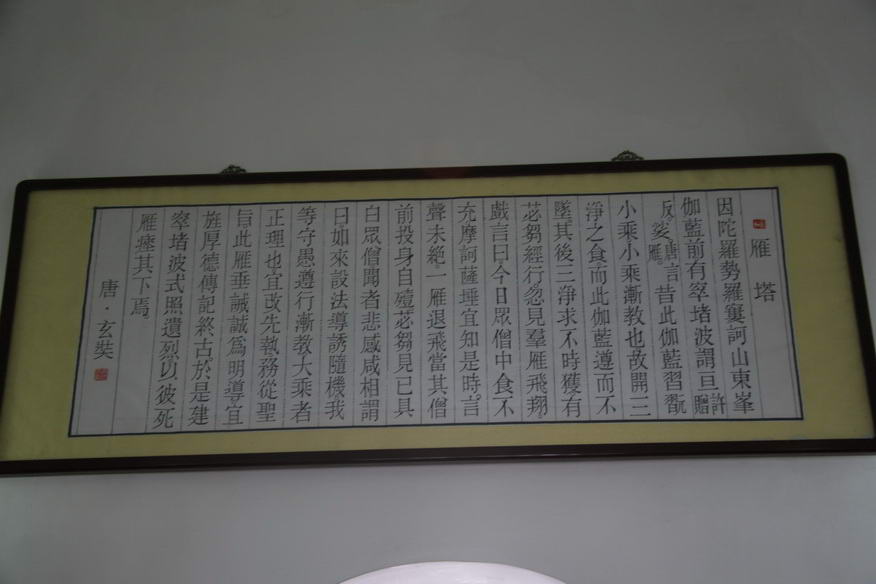 雁塔
因陀羅勢羅窶訶山東峯
伽藍前有窣堵波謂亘許贈
反娑唐言雁昔此伽藍習翫
小乘小乘漸教也故開三
淨之食而此伽藍遵而不
墜其後三淨求不時獲有
苾芻經行忽見羣雁飛翔
戲言曰今日眾僧中食不
充摩訶薩埵宜知是時言
聲未絕一雁退飛當其僧
前投身自殪苾芻見已具
白眾僧聞者悲感咸相謂
曰如來設法導誘隨機我
等守愚遵行漸教大乘者
正理也宜改先執務從聖
旨此雁垂誡誠爲明導宜
旌厚德傳記終古於是建
窣堵波式照遺烈以彼死
雁瘞其下焉。
唐·玄奘